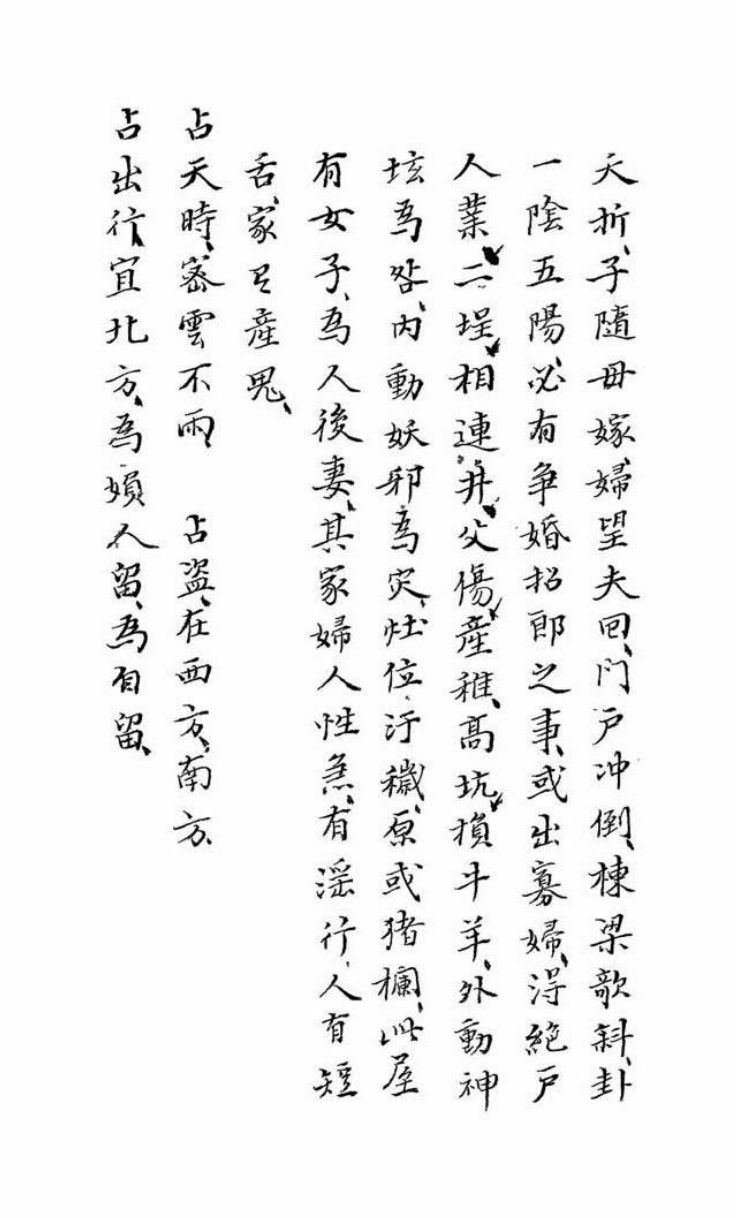 夭折、子隨母嫁、婦望夫回、門戶冲倒、棟梁欹斜、卦
一陰五陽、必有爭婚招郎之事、或出寡婦、淂絕戶
人業、二埕相連井、父傷産稚、高坑損牛羊、外動神
坛為咎、内動妖邪為灾、灶位汙穢、原或猪欄、此屋
有女子、為人後妻、其家婦人性急、有滛行、人有短
舌、家有産鬼、
占天時、密雲不雨 占盗、在西方、南方、
占出行、宜北方、為婦人留、為自留、